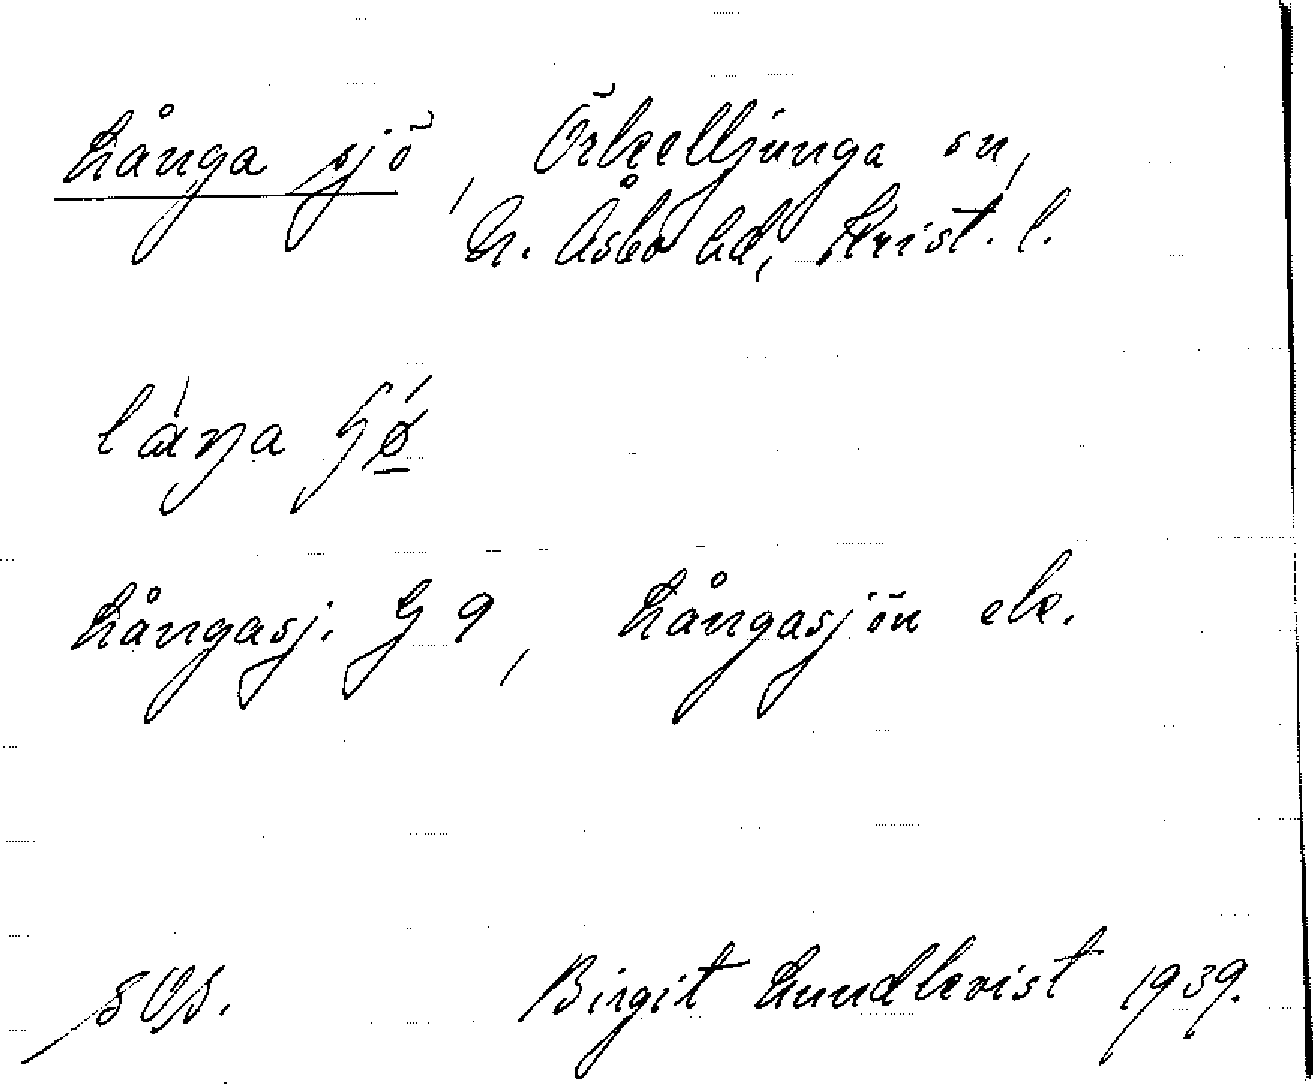 Långa sjö, Örkelljunga sn,
N. Åsbo hd, Krist. l.
Långasj. G 9, Långasjön ek.
Birgit Lundkvist 1939.